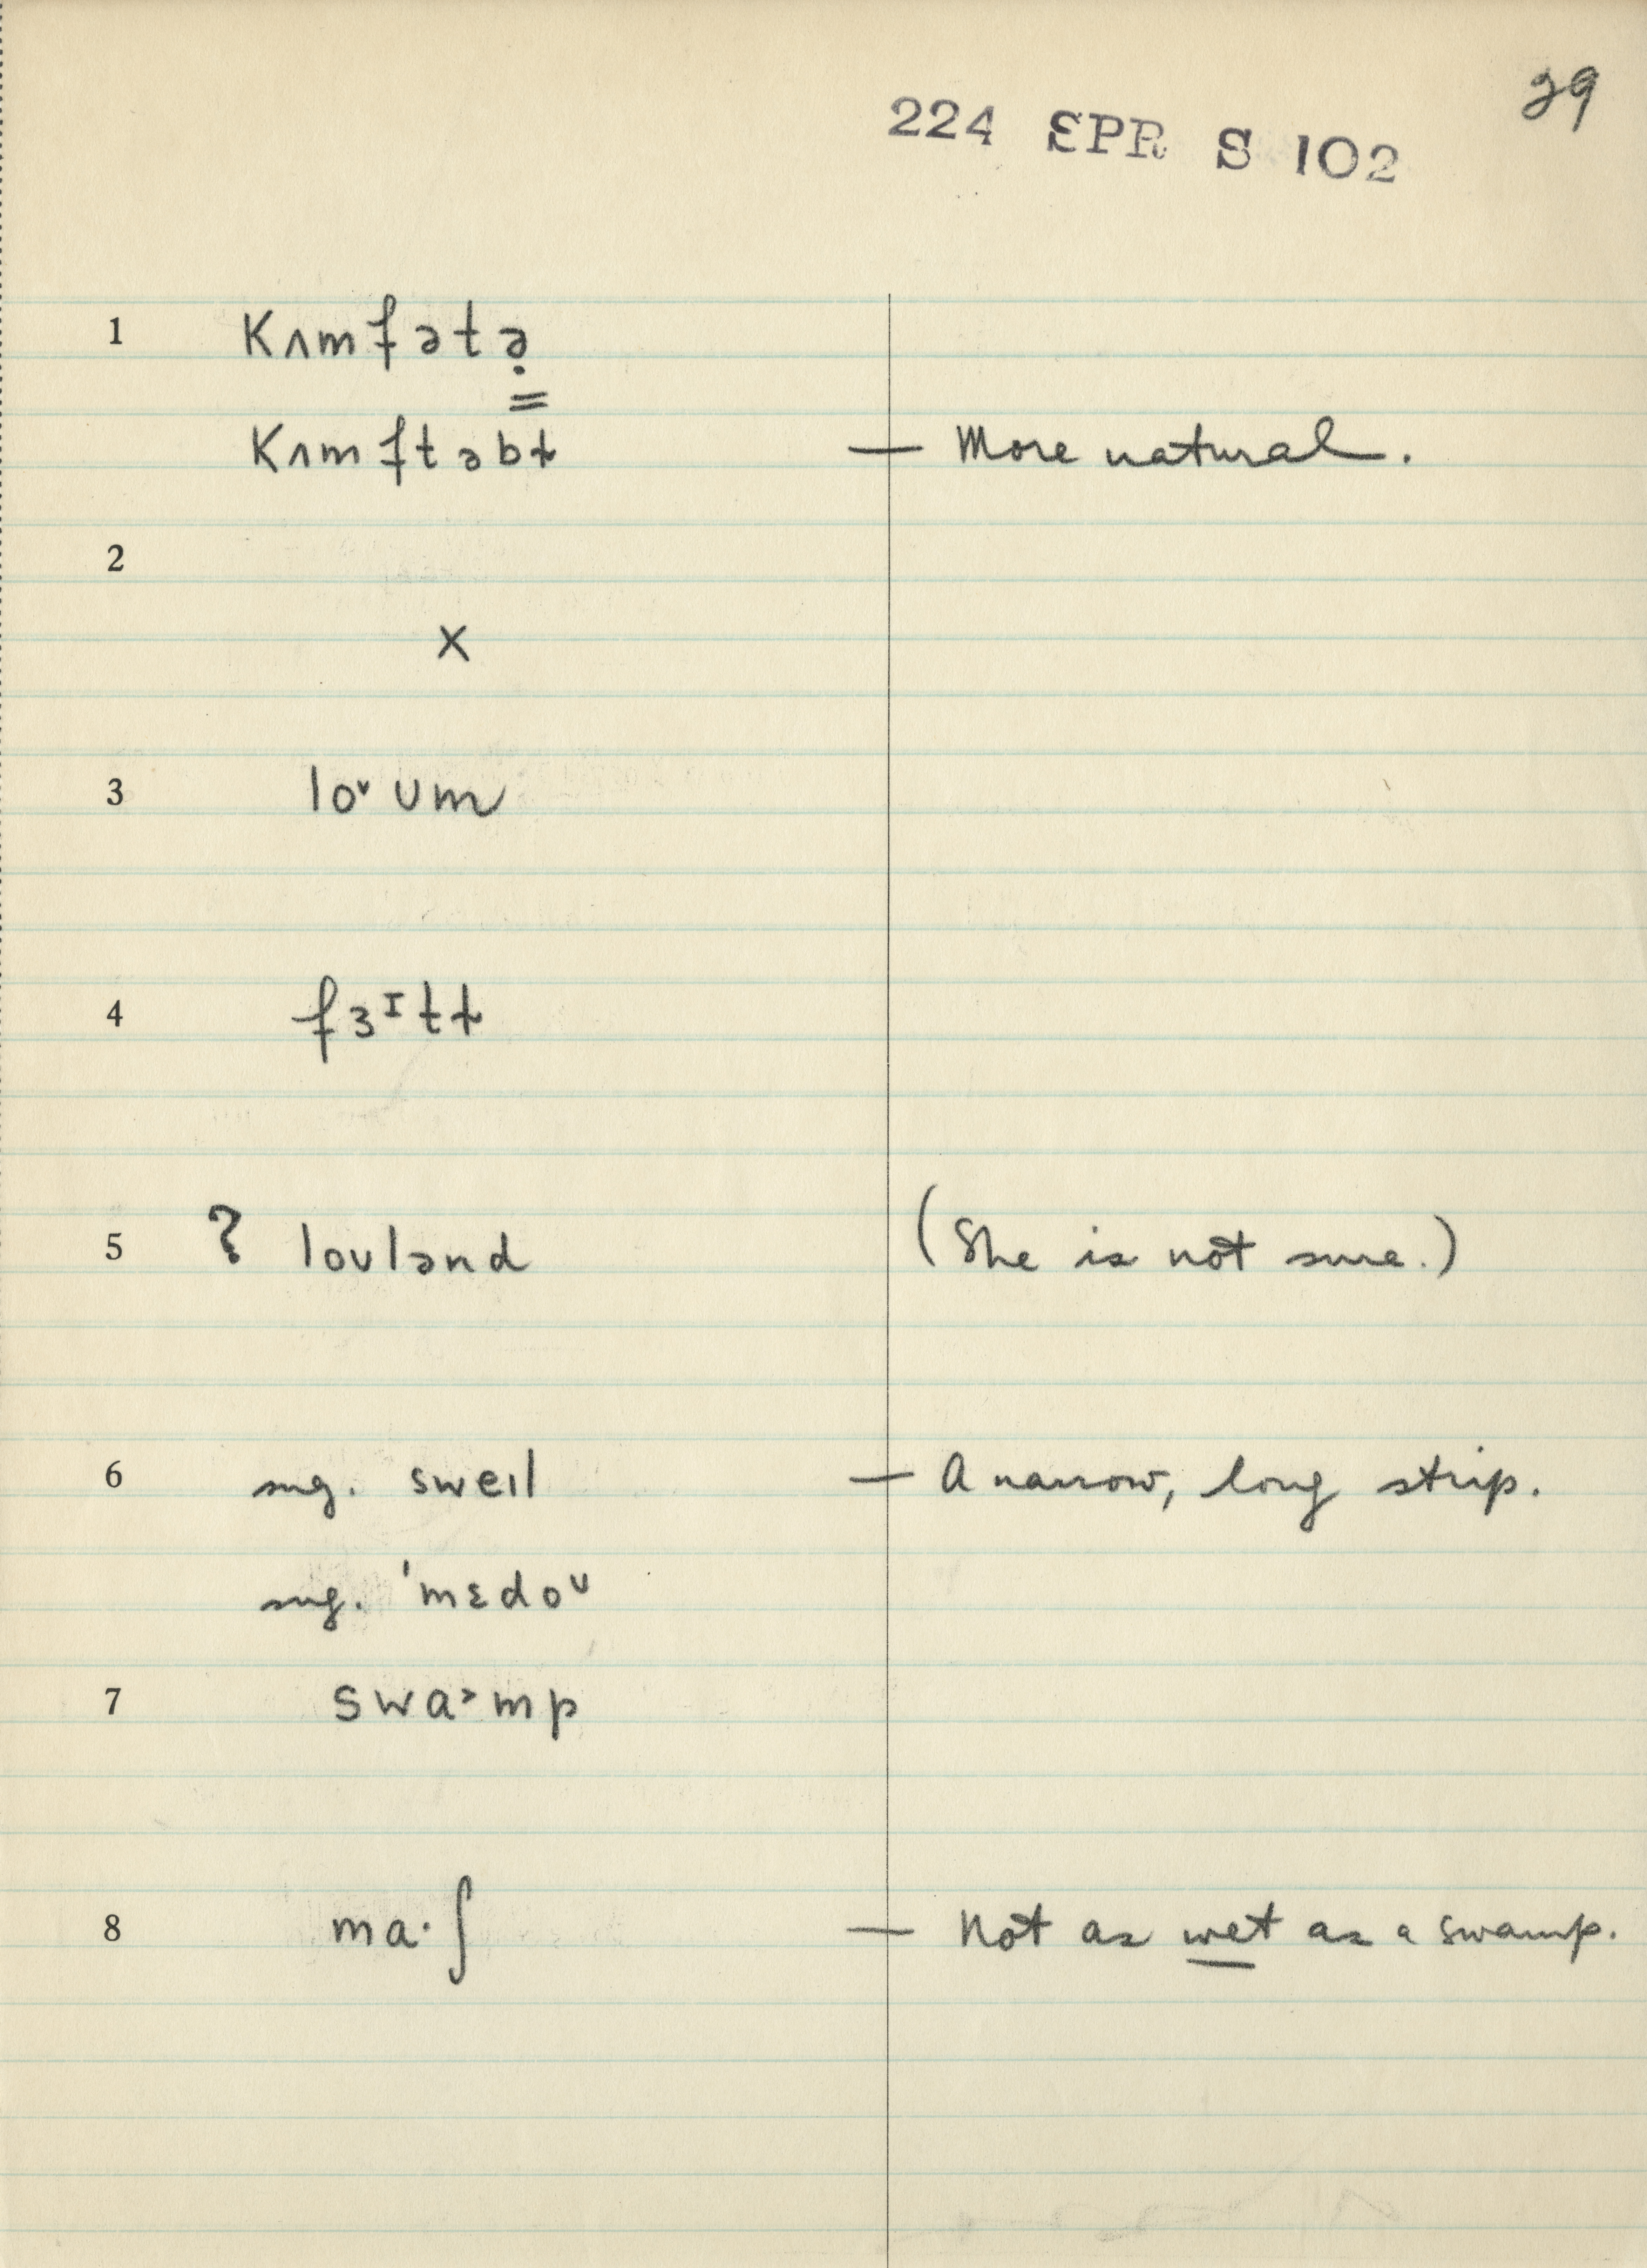 29
224 SPR S 102
1 kʌmfətə̣
kʌmftəbɫ — More natural.
2
X
3 lo˅ ʊm
4 fɜᴵtɫ
5 ? loʊlənd (She is not sure.)
6 sug. sweɪl — A narrow, long strip.
sug. ˈmɛdoᶷ
7 swa˃mp
8 ma·ʃ — Not as wet as a swamp.